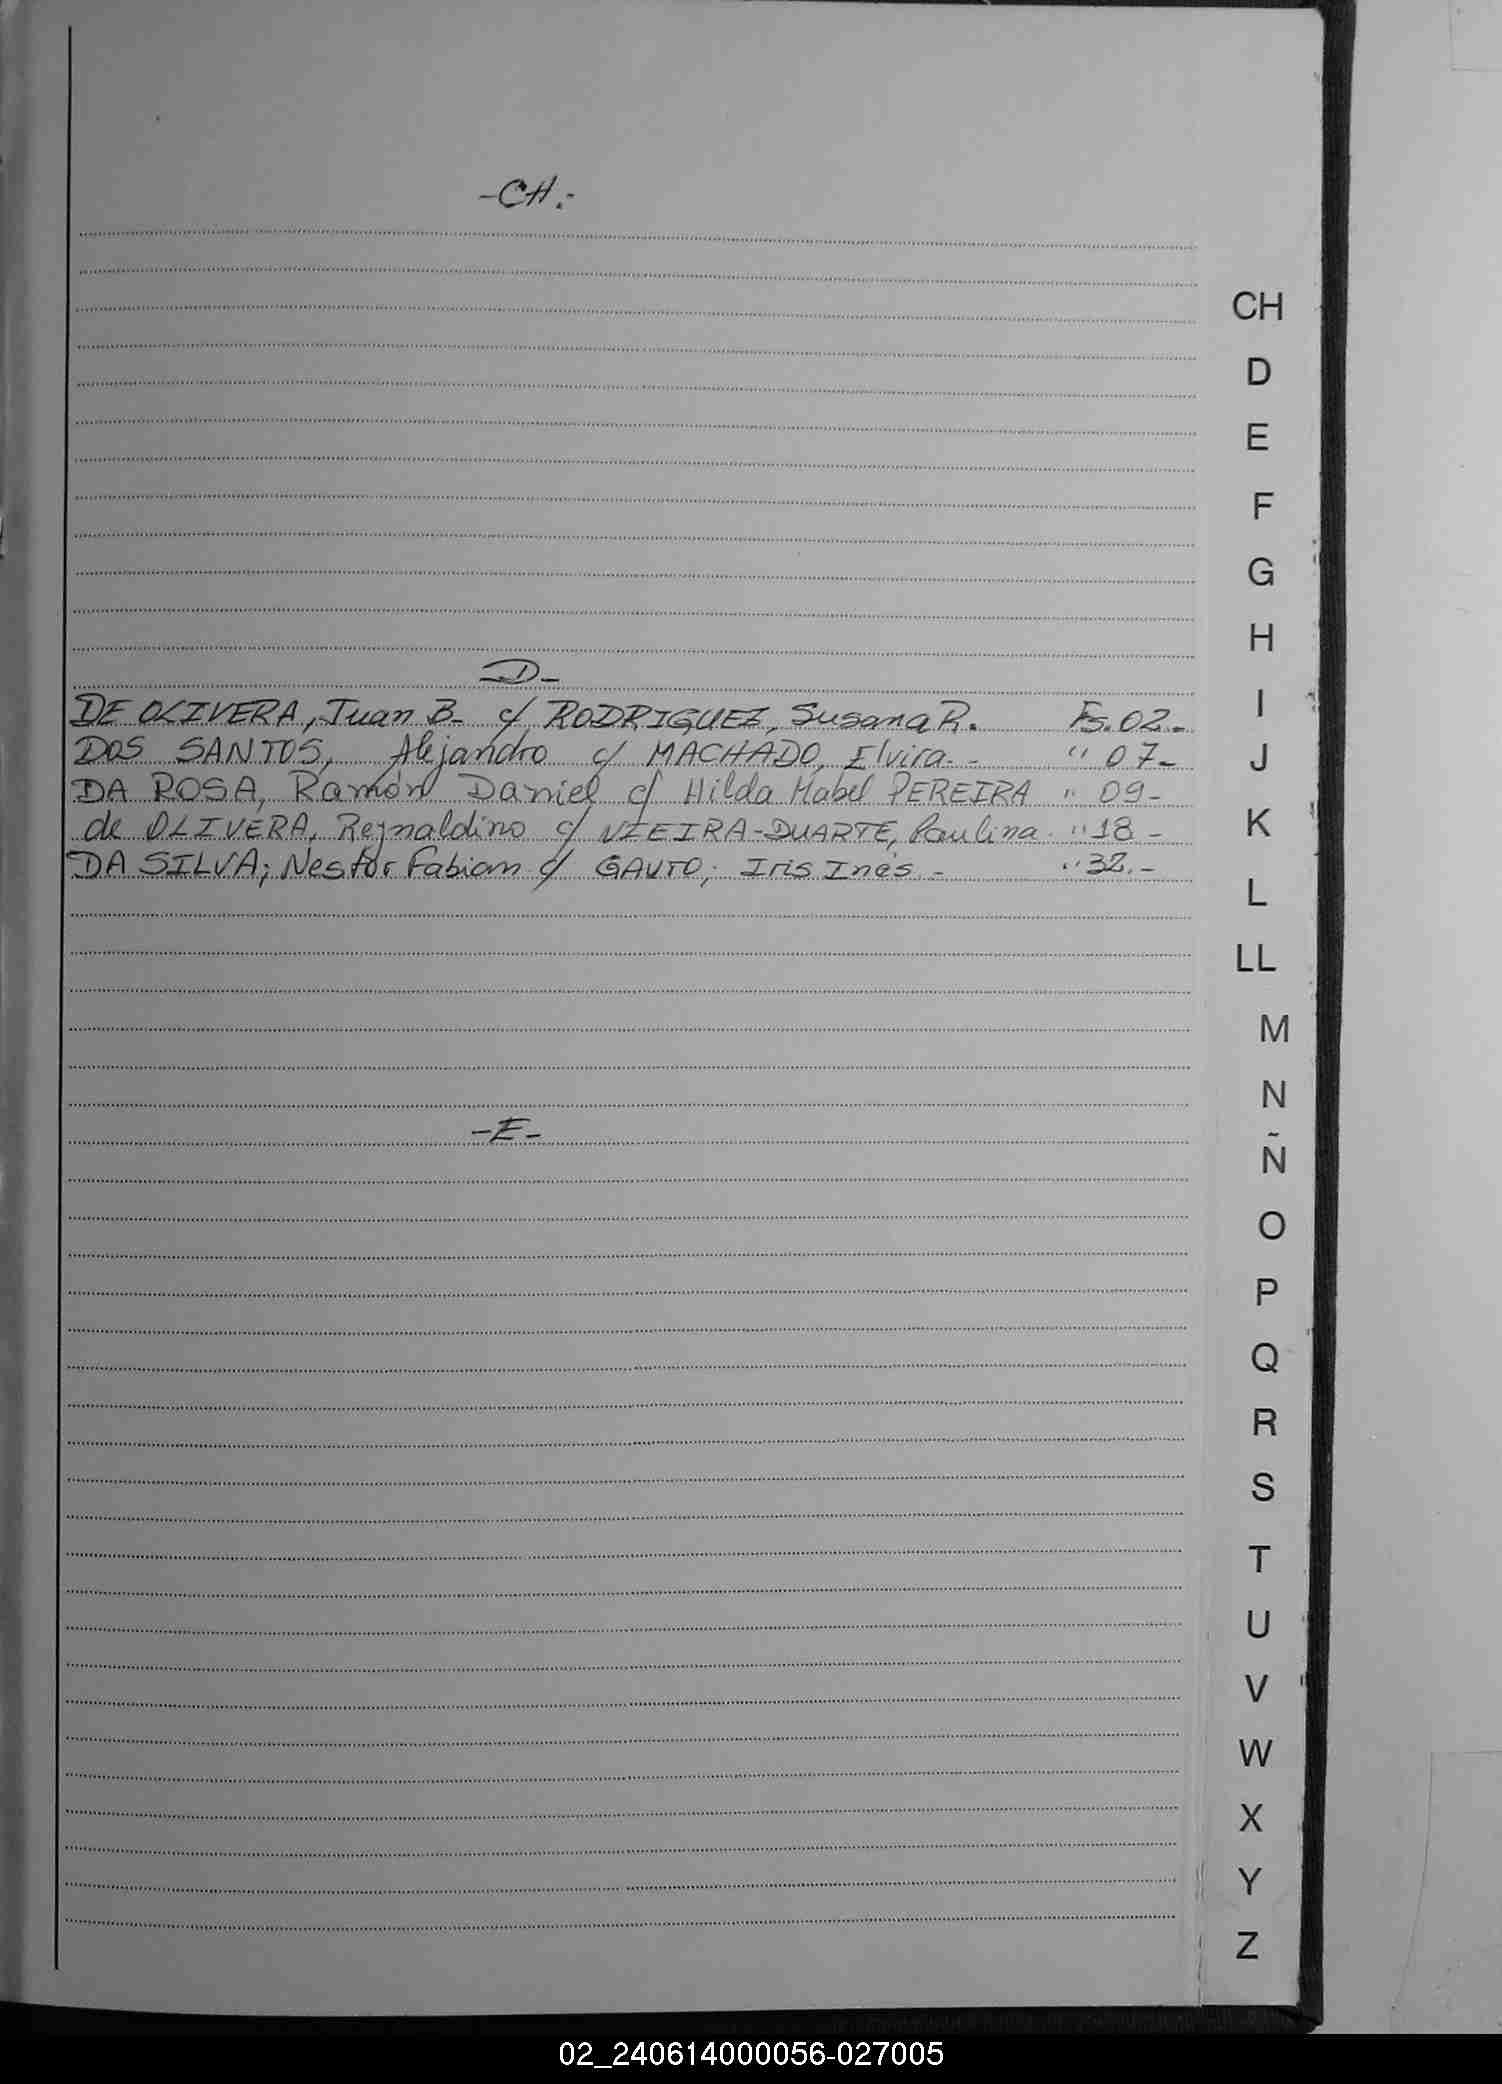 -CH.-
CH
D
E
F
G
H
I
J
K
L
LL
M
N
Ñ
O
P
Q
R
S
T
U
V
W
X
Y
Z
D-
DE OLIVERA, Juan B- c/ RODRIGUEZ, Susana R. Fs. 02-
DOS SANTOS, Alejandro c/ MACHADO, Elvira.- " 07-
DA ROSA, Ramón Daniel c/ Hilda Mabel PEREIRA " 09-
de OLIVERA, Reynaldino c/ VIEIRA-DUARTE, Paulina. " 18-
DA SILVA; Nestor Fabian c/ GAUTO; Iris Inés - " 32.-
-E-
02_240614000056-027005